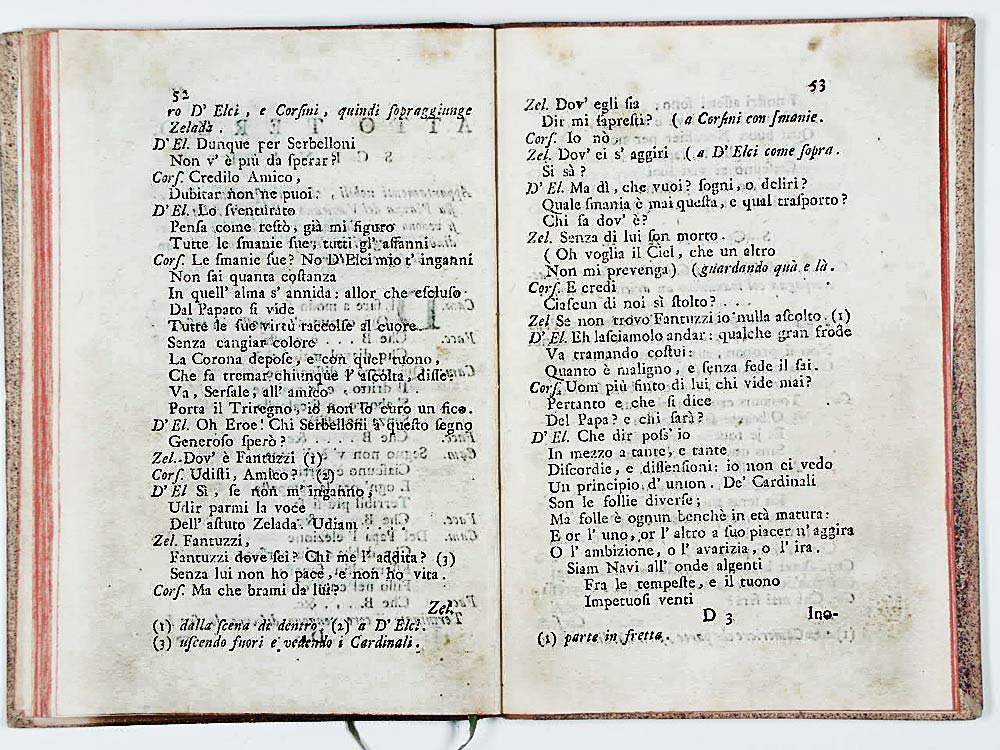 52
ro D' Elci, e Corſini, quindi ſopraggiunge
Zelada.
D' El. Dunque per Serbelloni
Non v' è più da ſperar?
Corſ. Credilo Amico,
Dubitar non ne puoi.
D' El. Lo ſventurato
Penſa come reſtò, già mi figuro
Tutte le ſmanie ſue, tutti gl' affanni
Corſ. Le ſmanie ſue? No D'Elci mio t' inganni
Non ſai quanta coſtanza
In quell' alma s' annida: allor che eſcluſo
Dal Papato ſi vide
Tutte le ſue virtù raccolſe al cuore
Senza cangiar colore
La Corona depoſe, e con quel tuono,
Che fa tremar chiunque l' aſcolta, diſſe:
Va, Serſale, all' amico
Porta il Triregno, io non lo curo un fico.
D' El. Oh Eroe! Chi Serbelloni a queſto ſegno
Generoſo ſperò?
Zel. Dov' è Fantuzzi (1)
Corſ. Udiſti, Amico? (2)
D' El Sì, ſe non m' inganno,
Udir parmi la voce
Dell' aſtuto Zelada. Udiam . . . .
Zel. Fantuzzi,
Fantuzzi dove ſei? Chi me l' addita? (3)
Senza lui non ho pace, e non ho vita.
Corſ. Ma che brami da lui?
Zel.
(1) dalla ſcena di dentro, (2) a D' Elci.
(3) uſcendo fuori e vedendo i Cardinali.
53
Zel. Dov' egli ſia
Dir mi ſapreſti? ( a Corſini con ſmanie.
Corſ. Io nò.
Zel. Dov' ei s' aggiri ( a D' Elci come ſopra.
Si sà?
D' El. Ma dì, che vuoi? ſogni, o deliri?
Quale ſmania è mai queſta, e qual traſporto?
Chi ſa dov' è?
Zel. Senza di lui ſon morto.
( Oh voglia il Ciel, che un altro
Non mi prevenga) (guardando quà e là.
Corſ. E credi
Ciaſcun di noi sì ſtolto? . . .
Zel Se non trovo Fantuzzi io nulla aſcolto. (1)
D' El. Eh laſciamolo andar: qualche gran frode
Va tramando coſtui:
Quanto è maligno, e ſenza fede il ſai.
Corſ. Uom più finto di lui chi vide mai?
Pertanto e che ſi dice
Del Papa? e chi ſarà?
D' El. Che dir poſs' io
In mezzo a tante, e tante
Diſcordie, e diſſenſioni: io non ci vedo
Un principio d' union. De' Cardinali
Son le follie diverſe;
Ma folle è ognun benchè in età matura:
E or l' uno, or l' altro a ſuo piacer n' aggira
O l' ambizione, o l' avarizia, o l' ira.
Siam Navi all' onde algenti
Fra le tempeſte, e il tuono
Impetuoſi venti
D 3 Ino-
(1) parte in fretta.